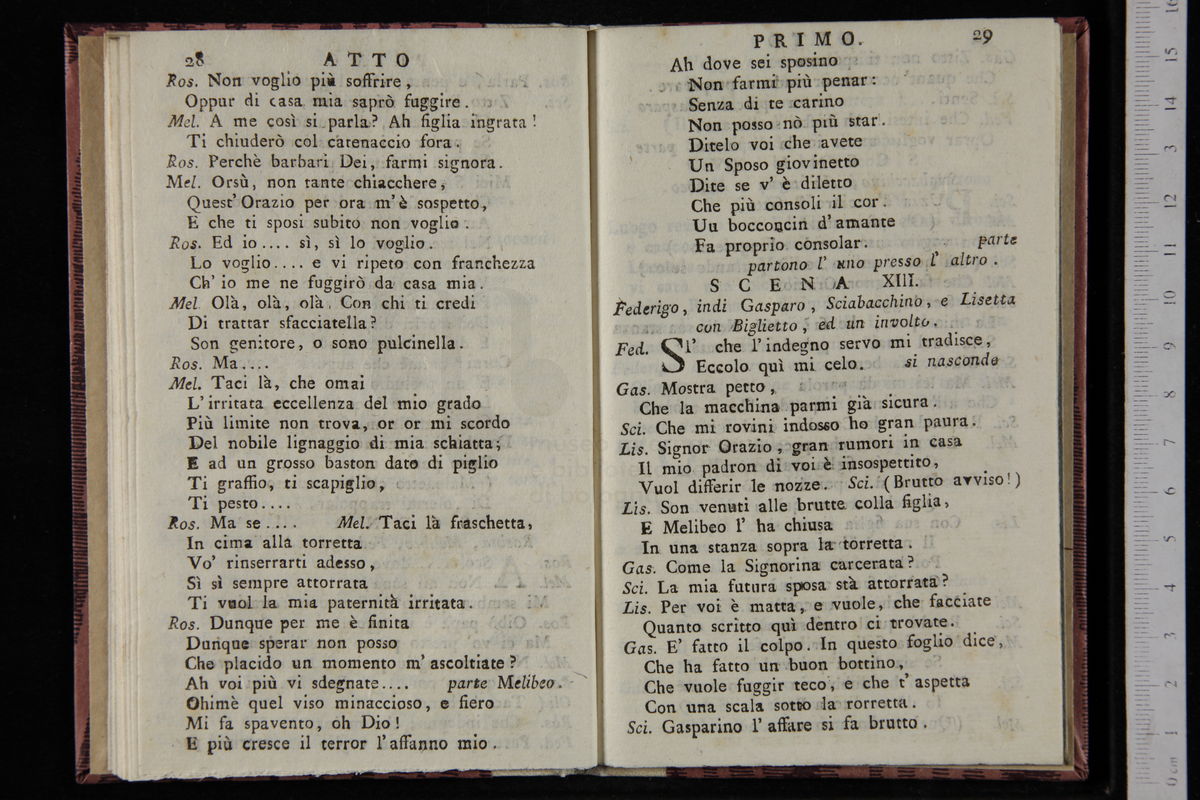 28 ATTO
Ros. Non voglio più soffrire,
Oppur di casa mia saprò fuggire.
Mel. A me così si parla? Ah figlia ingrata!
Ti chiuderò col catenaccio fora.
Ros. Perchè barbari Dei, farmi signora.
Mel. Orsù, non tante chiacchere,
Quest' Orazio per ora m'è sospetto,
E che ti sposi subito non voglio.
Ros. Ed io.... sì, sì lo voglio.
Lo voglio.... e vi ripeto con franchezza
Ch' io me ne fuggirò da casa mia.
Mel. Olà, olà, olà. Con chi ti credi
Di trattar sfacciatella?
Son genitore, o sono pulcinella.
Ros. Ma....
Mel. Taci là, che omai
L'irritata eccellenza del mio grado
Più limite non trova, or or mi scordo
Del nobile lignaggio di mia schiatta;
E ad un grosso baston dato di piglio
Ti graffio, ti scapiglio,
Ti pesto....
Ros. Ma se.... Mel. Taci là fraschetta,
In cima alla torretta
Vo' rinserrarti adesso,
Sì sì sempre attorrata
Ti vuol la mia paternità irritata.
Ros. Dunque per me è finita
Dunque sperar non posso
Che placido un momento m'ascoltiate?
Ah voi più vi sdegnate.... parte Melibeo.
Ohimè quel viso minaccioso, e fiero
Mi fa spavento, oh Dio!
E più cresce il terror l'affanno mio.
PRIMO. 29
Ah dove sei sposino
Non farmi più penar:
Senza di te carino
Non posso nò più star.
Ditelo voi che avete
Un Sposo giovinetto
Dite se v' è diletto
Che più consoli il cor.
Uu bocconcin d'amante
Fa proprio consolar. parte
partono l' uno presso l' altro.
SCENA XIII.
Federigo, indi Gasparo, Sciabacchino, e Lisetta
con Biglietto, ed un involto.
Fed. SI' che l'indegno servo mi tradisce,
Eccolo quì mi celo. si nasconde
Gas. Mostra petto,
Che la macchina parmi già sicura.
Sci. Che mi rovini indosso ho gran paura.
Lis. Signor Orazio, gran rumori in casa
Il mio padron di voi è insospettito,
Vuol differir le nozze. Sci. (Brutto avviso!)
Lis. Son venuti alle brutte colla figlia,
E Melibeo l' ha chiusa
In una stanza sopra la torretta.
Gas. Come la Signorina carcerata?
Sci. La mia futura sposa stà attorrata?
Lis. Per voi è matta, e vuole, che facciate
Quanto scritto quì dentro ci trovate.
Gas. E' fatto il colpo. In questo foglio dice,
Che ha fatto un buon bottino,
Che vuole fuggir teco, e che t' aspetta
Con una scala sotto la rorretta.
Sci. Gasparino l' affare si fa brutto.